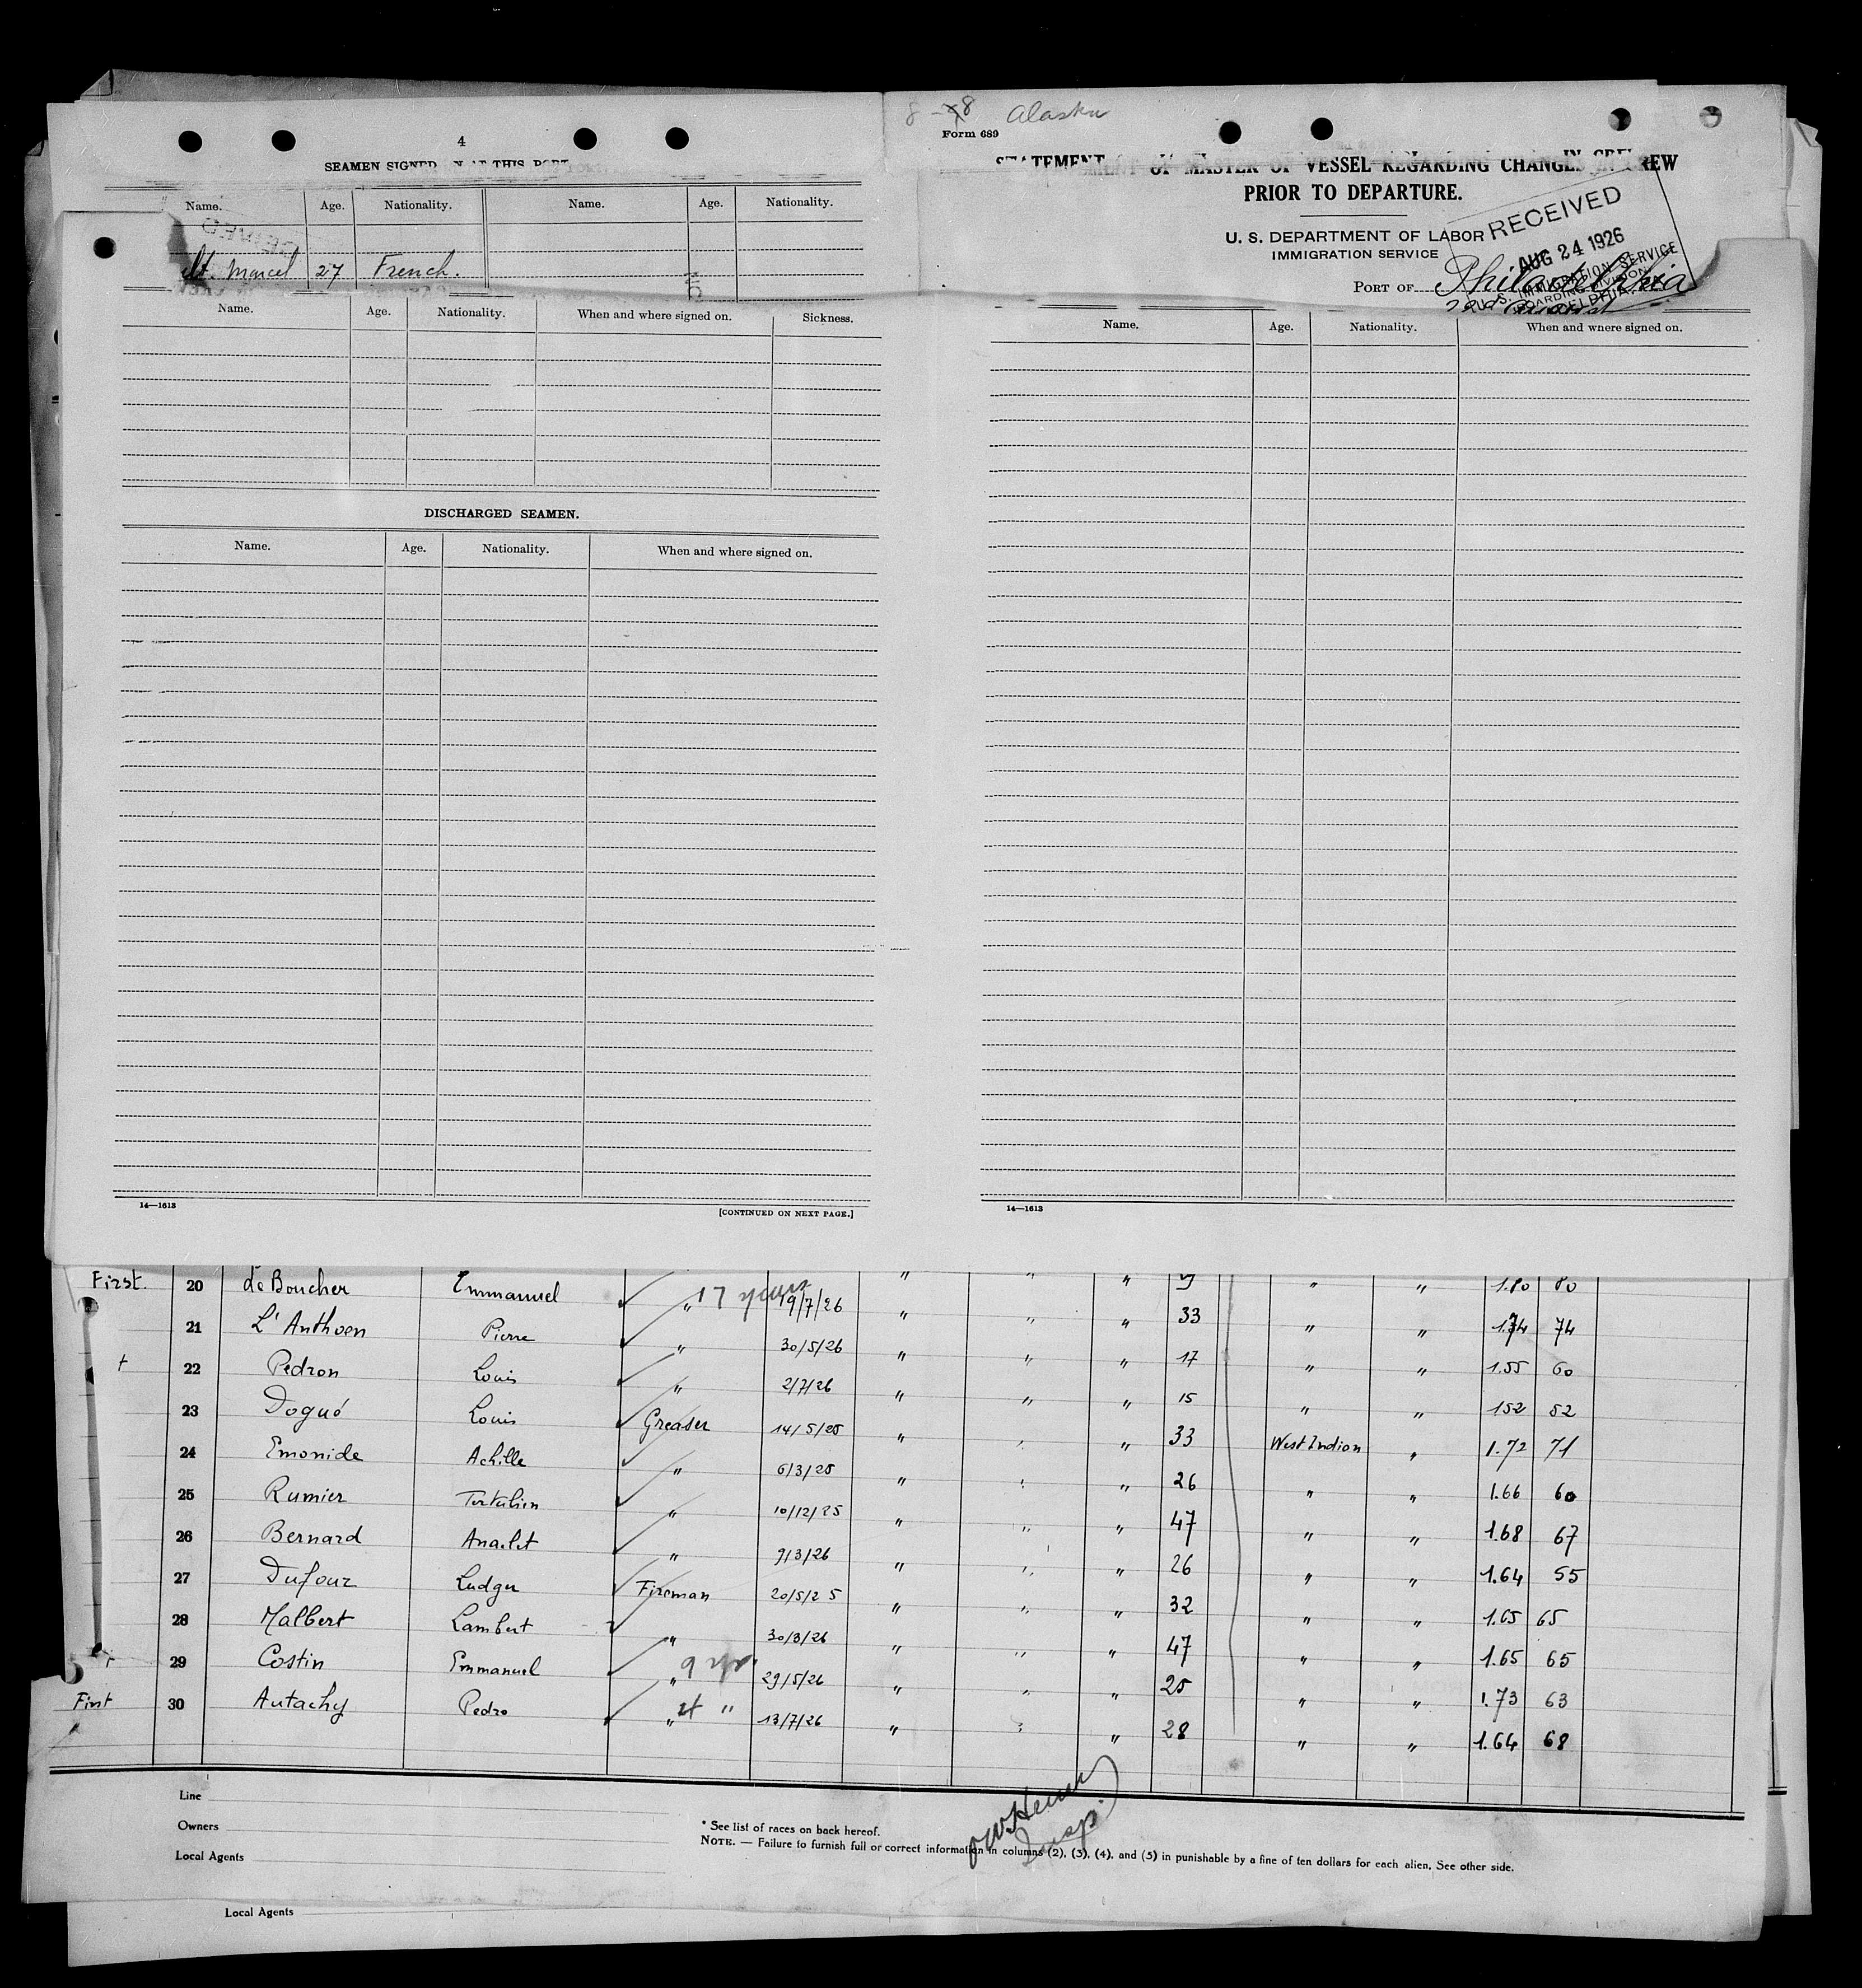 8-8 Alaska
Form 689
4
SEAMEN SIGNED ON AT THIS PORT
Name. Age. Nationality. Name. Age. Nationality.
Marcel 27 French.
STATEMENT OF MASTER OF VESSEL REGARDING CHANGES IN CREW
PRIOR TO DEPARTURE.
U. S. DEPARTMENT OF LABOR
IMMIGRATION SERVICE
RECEIVED
AUG 24 1926
U. S. IMMIGRATION SERVICE
BOARDING DIVISION
PHILADELPHIA
PORT OF Philadelphia
22nd August
Name. Age. Nationality. When and where signed on. Sickness.
DISCHARGED SEAMEN.
Name. Age. Nationality. When and where signed on.
14—1613 [CONTINUED ON NEXT PAGE.]
Name. Age. Nationality. When and where signed on.
14—1613
First. 20 Le Boucher Emmanuel " " " " " 1.80 80
17 years
21 L'Anthoen Pierre " 19/7/26 " " " 33 " " 1.74 74
+ 22 Pedron Louis " 30/5/26 " " " 17 " " 1.55 60
23 Dogué Louis " 2/7/26 " " " 15 " " 152 52
24 Emonide Achille Greaser 14/5/25 " " " 33 West Indion " 1.72 71
25 Rumier Tertulien " 6/3/25 " " " 26 " " 1.66 60
26 Bernard Anaclet " 10/12/25 " " " 47 " " 1.68 67
27 Dufour Ludger " 9/3/26 " " " 26 " " 1.64 55
28 Malbert Lambert Fireman 20/5/25 " " " 32 " " 1.65 65
29 Costin Emmanuel " 30/3/26 " " " 47 " " 1.65 65
First 30 Autachy Pedro " 9 yrs. 29/5/26 " " " 25 " " 1.73 63
" " 13/7/26 " " " 28 " " 1.64 68
Line
Owners
Local Agents
* See list of races on back hereof.
NOTE. — Failure to furnish full or correct information in columns (2), (3), (4), and (5) in punishable by a fine of ten dollars for each alien. See other side.
Insp.
Local Agents